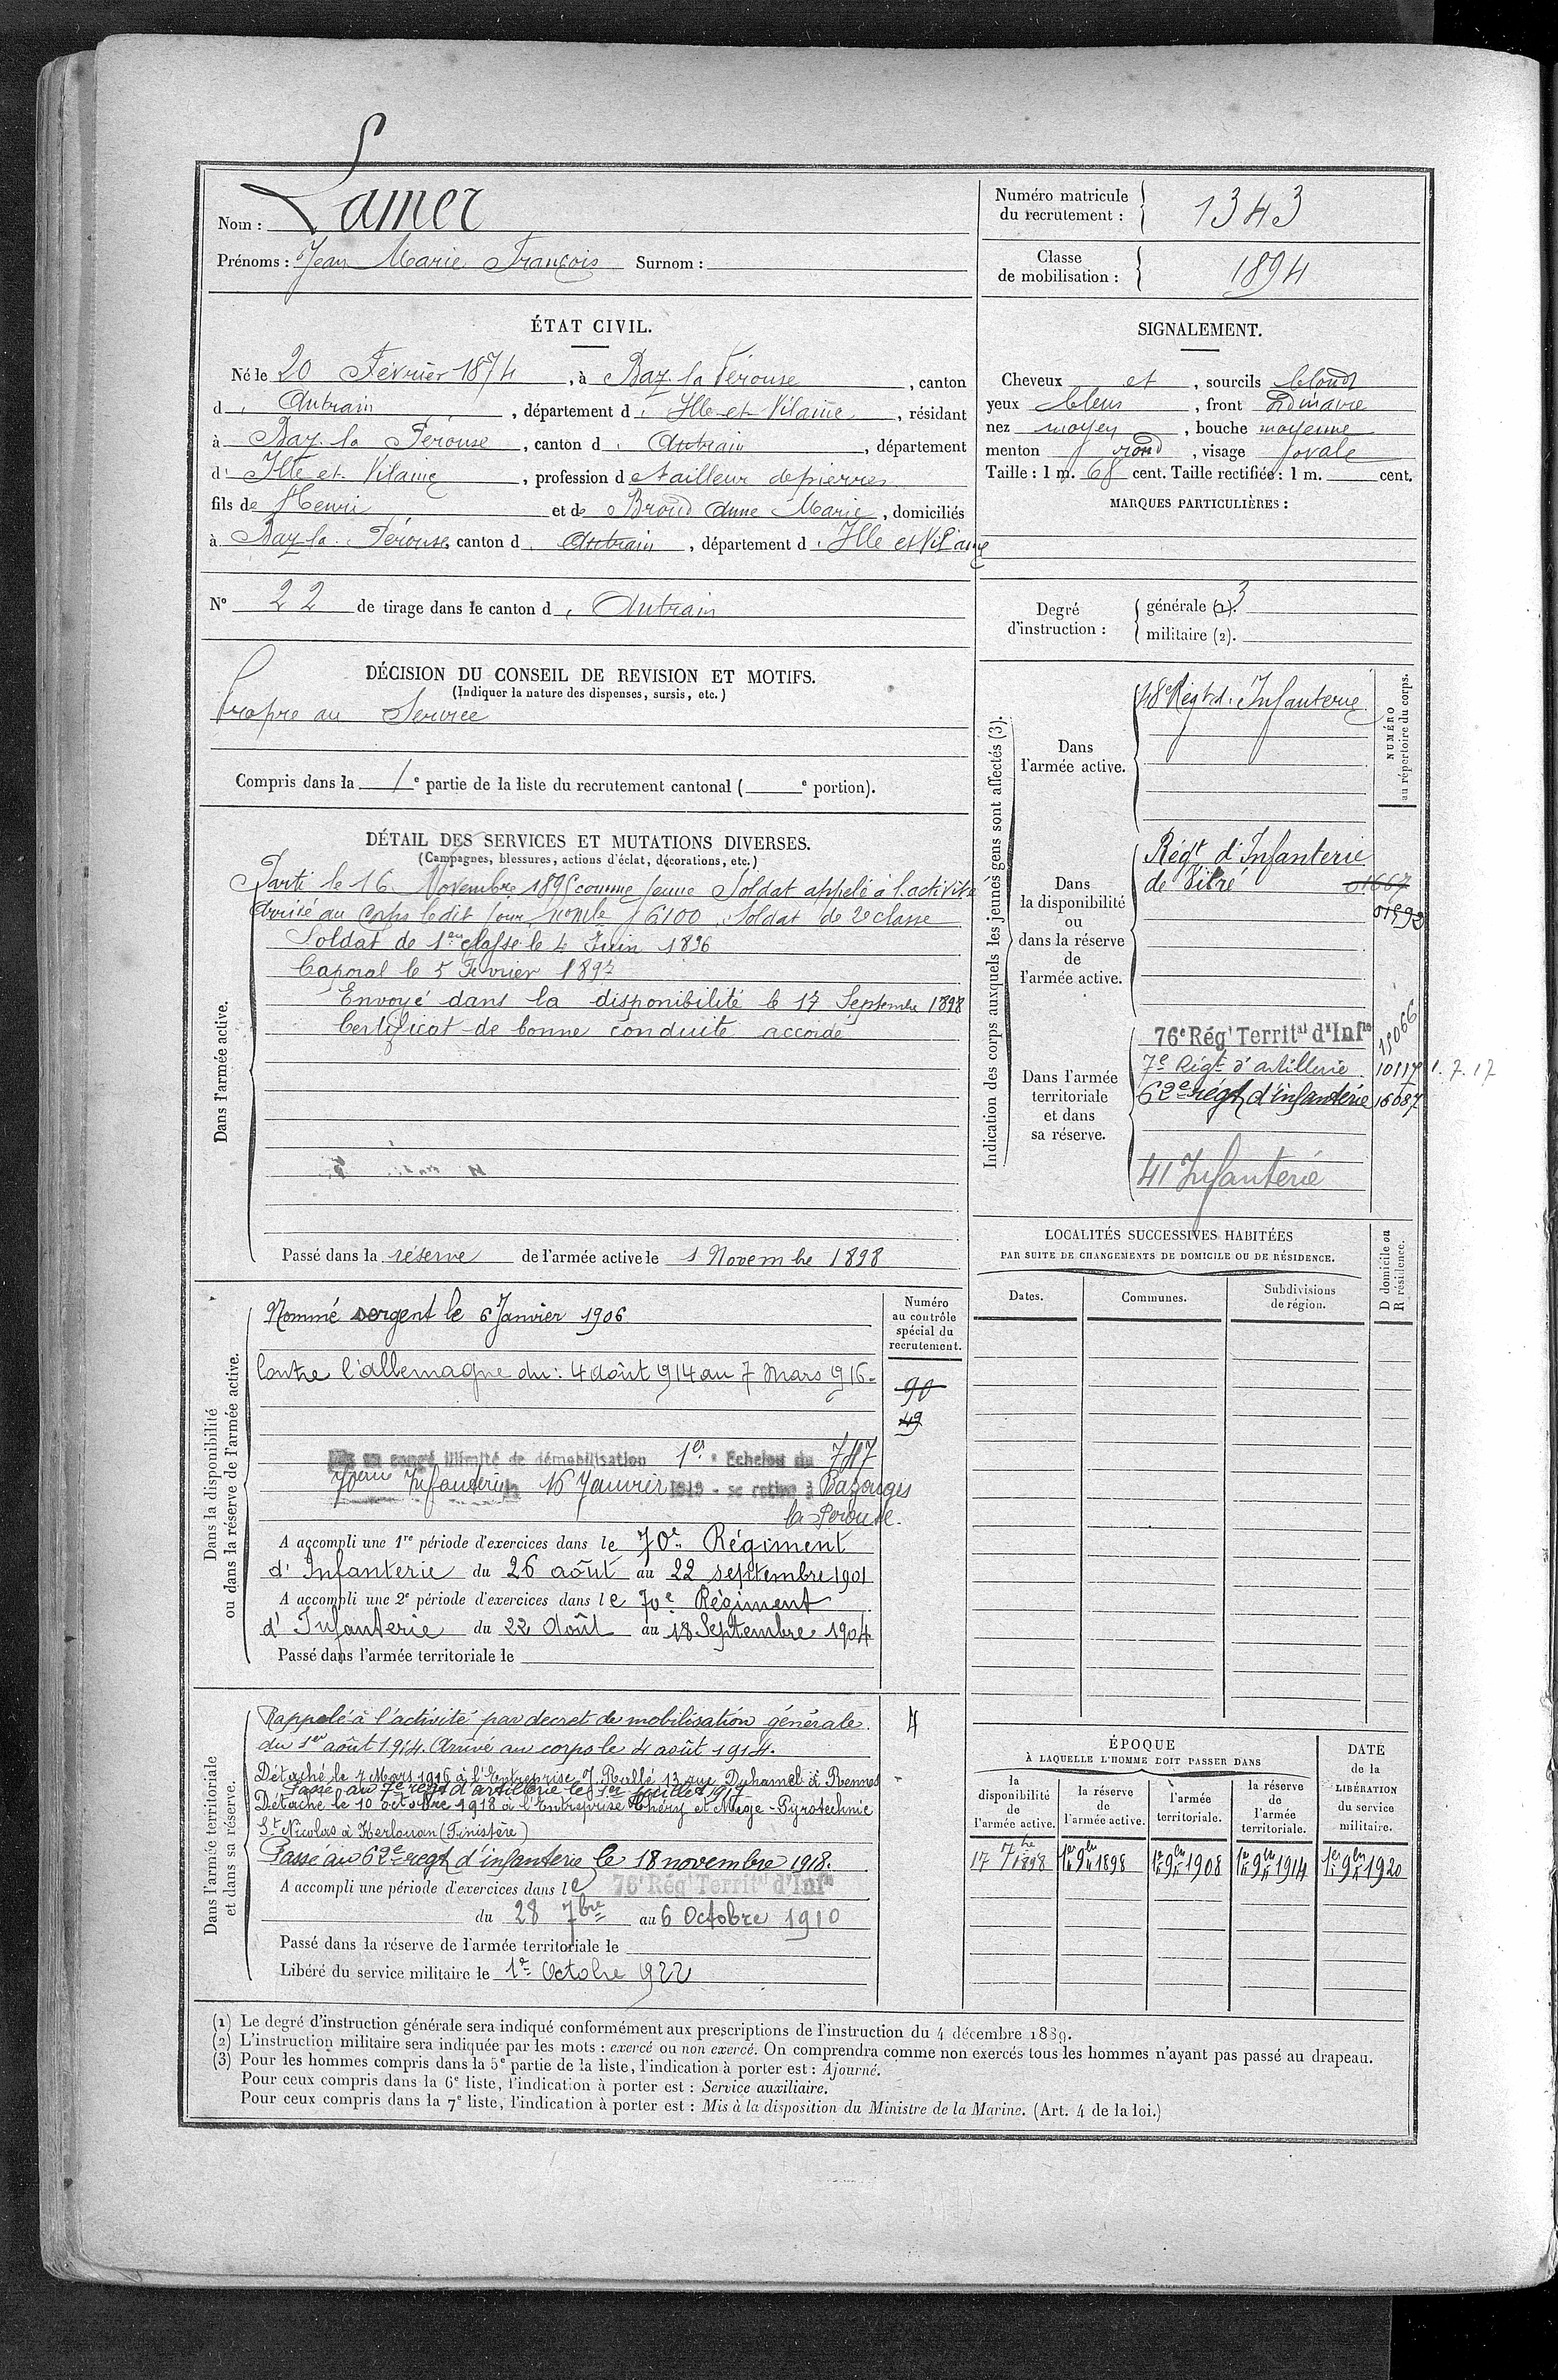 Nom : Lamer
Prénoms : Jean Marie François Surnom :
Numéro matricule du recrutement : 1343
Classe de mobilisation : 1894
ÉTAT CIVIL.
Né le 20 Février 1874, à Baz. la Pérouse, canton
d' Antrain, département d' Ille-et-Vilaine, résidant
à Baz. la Pérouse, canton d' Antrain, département
d' Ille et Vilaine, profession de tailleur de pierres
fils de Henri et de Broud Anne Marie, domiciliés
à Baz. la Pérouse, canton d' Antrain, département d' Ille et Vilaine
N° 22 de tirage dans le canton d' Antrain
SIGNALEMENT.
Cheveux et, sourcils blonds
yeux bleus, front ordinaire
nez moyen, bouche moyenne
menton rond, visage ovale
Taille : 1 m. 68 cent. Taille rectifiée : 1 m. cent.
MARQUES PARTICULIÈRES :
Degré d'instruction :
générale (1). 3
militaire (2).
DÉCISION DU CONSEIL DE REVISION ET MOTIFS.
(Indiquer la nature des dispenses, sursis, etc.)
Propre au Service
Compris dans la 1e partie de la liste du recrutement cantonal ( e portion).
DÉTAIL DES SERVICES ET MUTATIONS DIVERSES.
(Campagnes, blessures, actions d'éclat, décorations, etc.)
Dans l'armée active.
Parti le 16 Novembre 1895 comme jeune Soldat appelé à l'activité
Arrivé au Corps ledit jour, n° mle 6100 Soldat de 2e classe
Soldat de 1ère classe le 4 Juin 1896
Caporal le 5 Février 1897
Envoyé dans la disponibilité le 17 Septembre 1898
Certificat de bonne conduite accordé
Passé dans la réserve de l'armée active le 1 Novembre 1898
Indication des corps auxquels les jeunes gens sont affectés (3).
NUMÉRO
au répertoire du corps.
Dans l'armée active.
48e Régt d'Infanterie
Dans la disponibilité ou dans la réserve de l'armée active.
Régt d'Infanterie
de Vitré 01667
01592
Dans l'armée territoriale et dans sa réserve.
76e Régt Territal d'Infie 15066
7e Régt d'artillerie 10117 1.7.17
62e régt d'infanterie 16687
41 Infanterie
LOCALITÉS SUCCESSIVES HABITÉES
PAR SUITE DE CHANGEMENTS DE DOMICILE OU DE RÉSIDENCE.
Dates.
Communes.
Subdivisions de région.
D domicile ou
R résidence.
Dans la disponibilité
ou dans la réserve de l'armée active.
Numéro au contrôle spécial du recrutement.
90
49
Nommé sergent le 6 Janvier 1906
Contre l'allemagne du : 4 août 914 au 7 Mars 916.
Mis en congé illimité de démobilisation 1er Echelon du 787
70eme Infanterie le 16 Janvier 1919 - se retire à Bazouges
la Pérouse.
A accompli une 1re période d'exercices dans le 70e Régiment
d'Infanterie du 26 août au 22 septembre 1901
A accompli une 2e période d'exercices dans le 70e Régiment
d'Infanterie du 22 Août au 18 Septembre 1904
Passé dans l'armée territoriale le
Dans l'armée territoriale
et dans sa réserve.
4
Rappelé à l'activité par decret de mobilisation générale
du 1er août 1914. Arrivé au corps le 4 août 1914.
Détaché le 7 Mars 1916 à l'Entreprise J. Rallé 13 rue Duhamel à Rennes
Passé au 7e régt d'artillerie le 1er juillet 1917
Détaché le 10 octobre 1918 à l'Entreprise Théry et Mège - Pyrotechnie
St Nicolas à Kerlouan (Finistère)
Passe au 62e regt d'infanterie le 18 novembre 1918.
A accompli une période d'exercices dans le 76e Régt Territal d'Infie
du 28 7bre au 6 Octobre 1910
Passé dans la réserve de l'armée territoriale le
Libéré du service militaire le 1er Octobre 1922
ÉPOQUE
À LAQUELLE L'HOMME DOIT PASSER DANS
la disponibilité de l'armée active.
la réserve de l'armée active.
l'armée territoriale.
la réserve de l'armée territoriale.
DATE de la LIBÉRATION du service militaire.
17 7bre 1898
1er 9bre 1898
1er 9bre 1908
1er 9bre 1914
1er 9bre 1920
(1) Le degré d'instruction générale sera indiqué conformément aux prescriptions de l'instruction du 4 décembre 1889.
(2) L'instruction militaire sera indiquée par les mots : exercé ou non exercé. On comprendra comme non exercés tous les hommes n'ayant pas passé au drapeau.
(3) Pour les hommes compris dans la 5e partie de la liste, l'indication à porter est : Ajourné.
Pour ceux compris dans la 6e liste, l'indication à porter est : Service auxiliaire.
Pour ceux compris dans la 7e liste, l'indication à porter est : Mis à la disposition du Ministre de la Marine. (Art. 4 de la loi.)